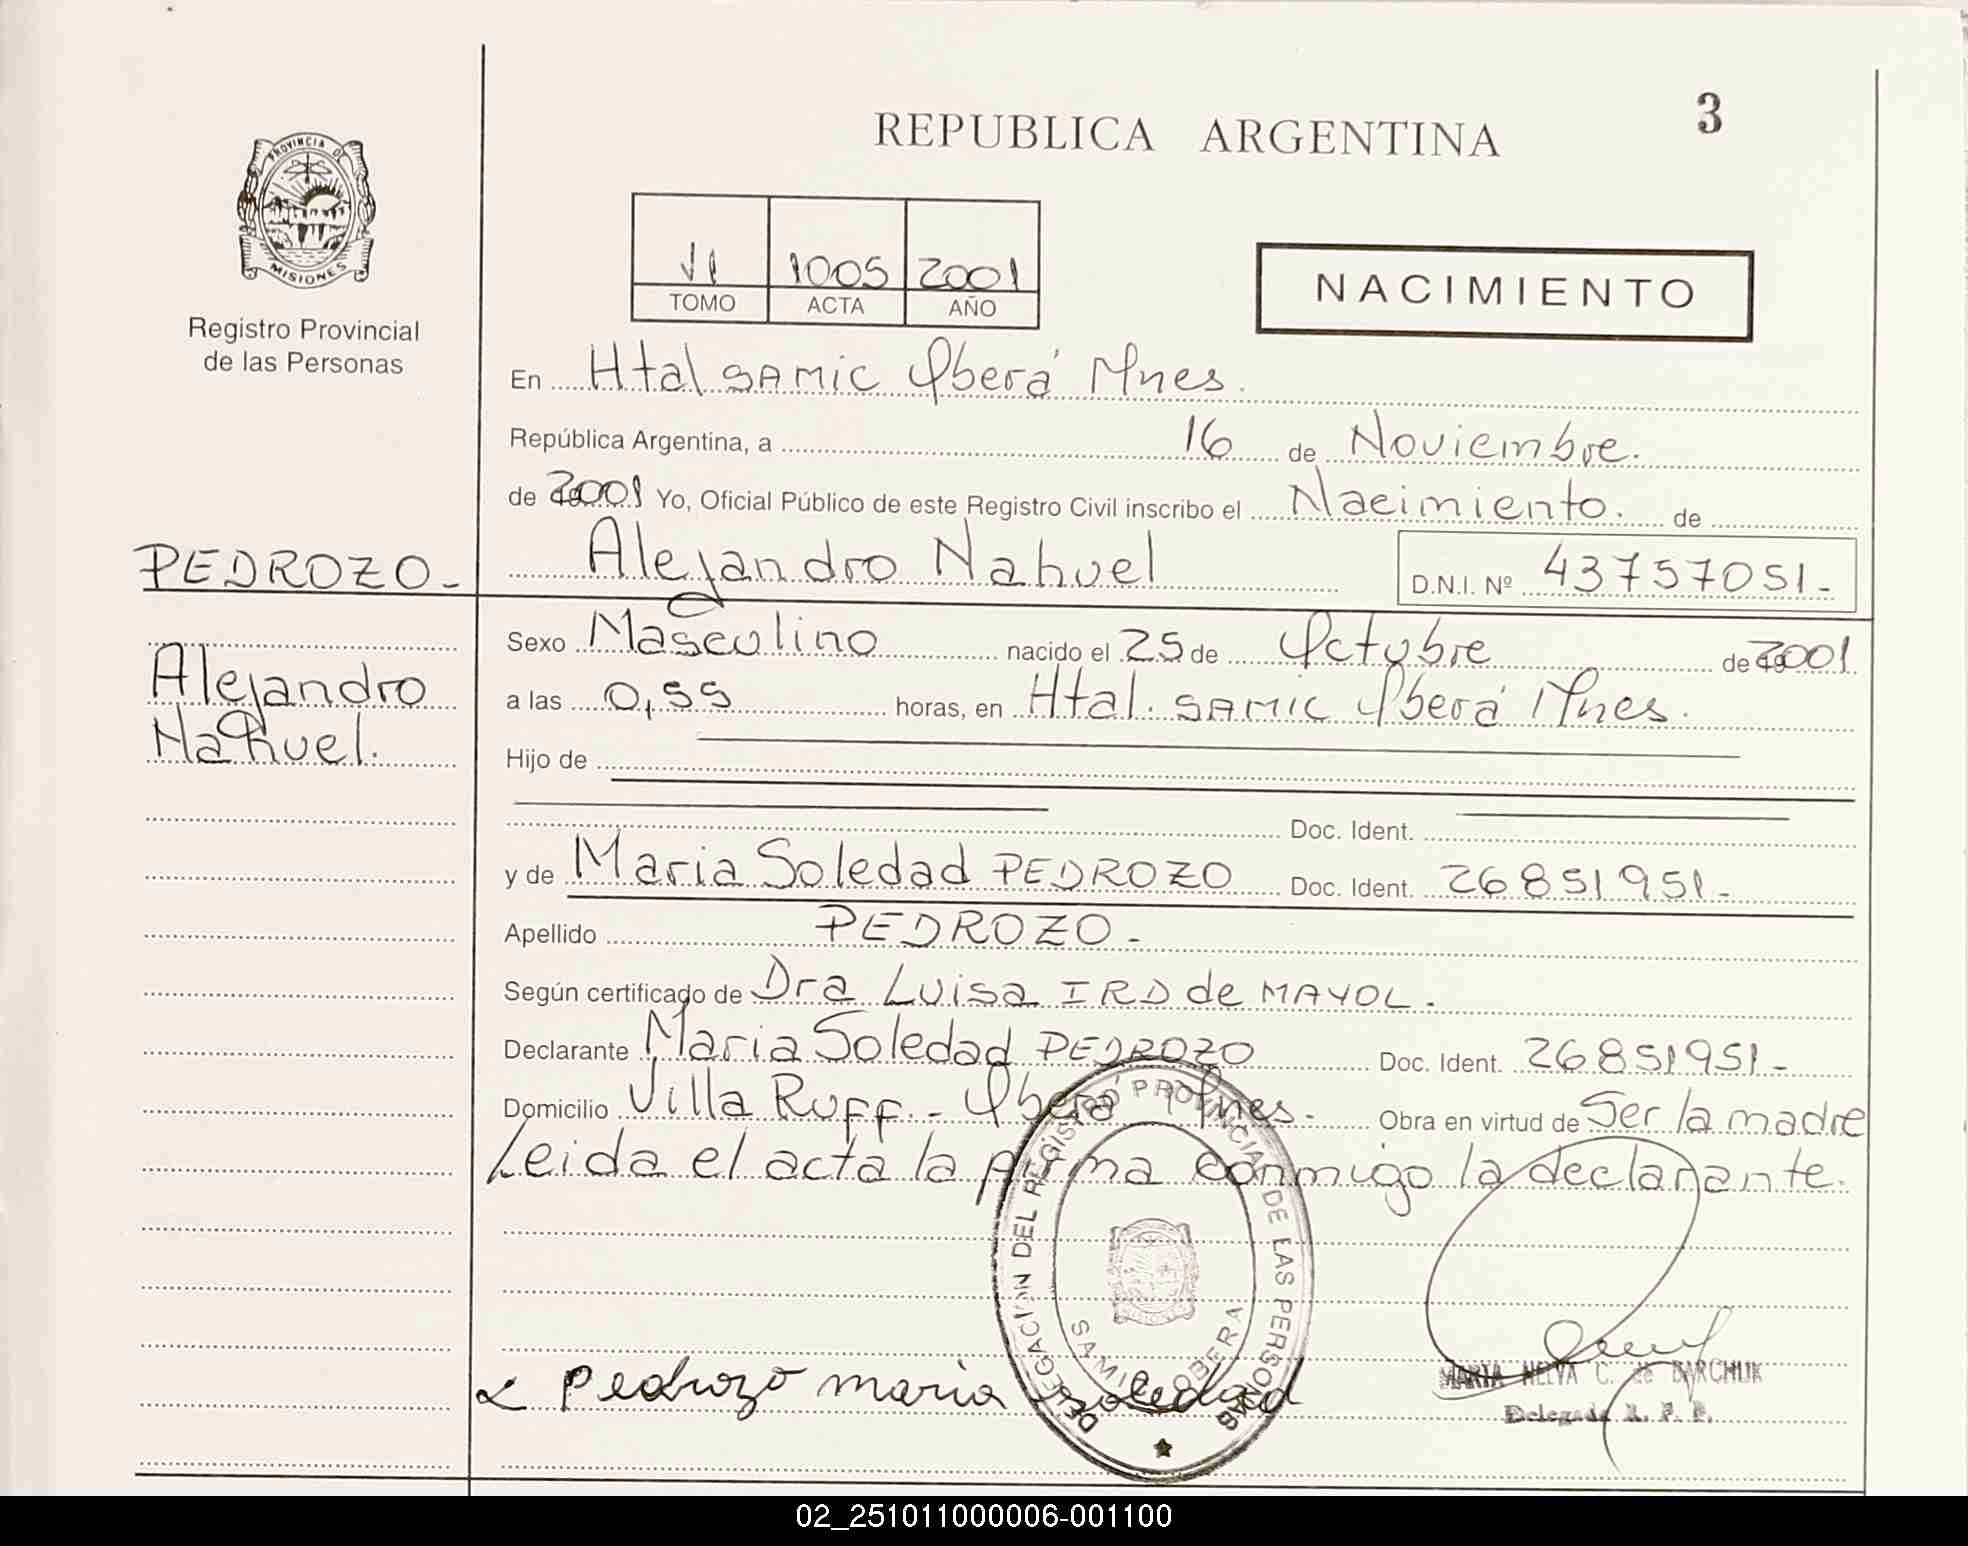 REPUBLICA ARGENTINA
3
PROVINCIA DE
MISIONES
Registro Provincial
de las Personas
VI 1005 2001
TOMO ACTA AÑO
NACIMIENTO
En Htal SAMIC Oberá Mnes.
República Argentina, a 16 de Noviembre.
de 2001 Yo, Oficial Público de este Registro Civil inscribo el Nacimiento. de
PEDROZO-
Alejandro Nahuel
D.N.I. Nº 43757051-
Alejandro
Nahuel.
Sexo Masculino nacido el 25 de Octubre de 2001
a las 0,55 horas, en Htal. SAMIC Oberá Mnes.
Hijo de
Doc. Ident.
y de Maria Soledad PEDROZO Doc. Ident. 26851951-
Apellido PEDROZO-
Según certificado de Dra Luisa IRD de MAYOL.
Declarante Maria Soledad PEDROZO Doc. Ident. 26851951-
Domicilio Villa Ruff.- Oberá Mnes.- Obra en virtud de Ser la madre
Leida el acta la firma conmigo la declarante.
DELEGACION DEL REGISTRO PROVINCIAL DE LAS PERSONAS
SAMIC OBERA
Pedrozo maria Soledad
MARIA NELVA C. de BARCHUK
Delegada R. P. P.
02_251011000006-001100